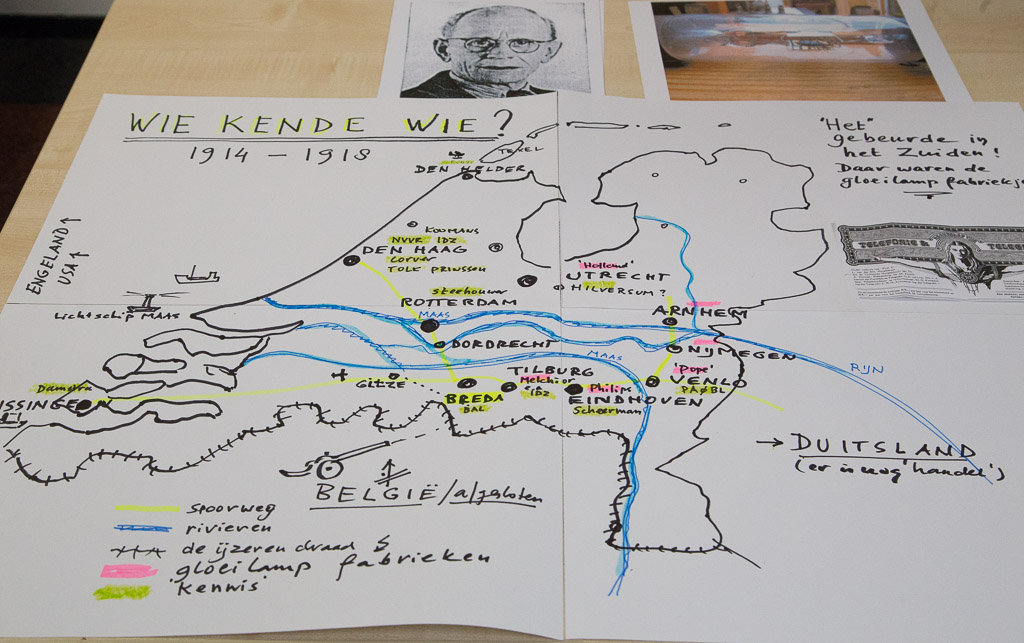 WIE KENDE WIE?
1914 – 1918
"Het"
gebeurde in
het Zuiden!
Daar waren de
gloeilamp fabriekje
TEXEL
DEN HELDER
ENGELAND ↑
USA ↑
KOOMANS
NVVR IDZ
DEN HAAG
Corver
TOLK PRINSSEN
'Holland'
UTRECHT
HILVERSUM?
TELEFONIE
Steehouwer
ROTTERDAM
Lichtschip MAAS
MAAS
ARNHEM
DORDRECHT
NIJMEGEN
MAAS
RIJN
Dameyra
ISSINGEN
GILZE
TILBURG
Melchior
IDZ
'Pope'
VENLO
BREDA
BAL
Philips
EINDHOVEN
Scheerman
→ DUITSLAND
(er is nog 'handel')
BELGIË/afgesloten
spoorweg
rivieren
de ijzeren draad
'gloeilamp fabrieken
'kennis'